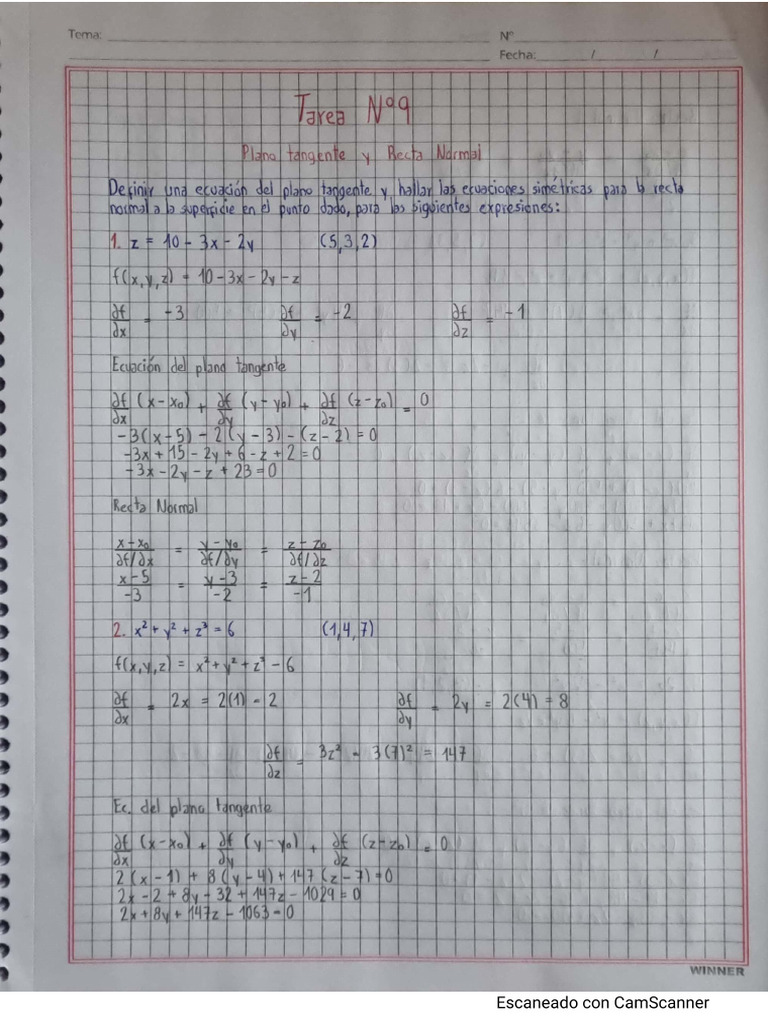 Tema:
Nº
Fecha: / /
Tarea Nº9
Plano tangente y Recta Normal
Definir una ecuación del plano tangente y hallar las ecuaciones simétricas para la recta
normal a la superficie en el punto dado, para las siguientes expresiones:
1. z = 10 - 3x - 2y (5,3,2)
f(x,y,z) = 10 - 3x - 2y - z
∂f/∂x = -3 ∂f/∂y = -2 ∂f/∂z = -1
Ecuación del plano tangente
∂f/∂x (x-x₀) + ∂f/∂y (y-y₀) + ∂f/∂z (z-z₀) = 0
-3(x-5) - 2(y-3) - (z-2) = 0
-3x + 15 - 2y + 6 - z + 2 = 0
-3x - 2y - z + 23 = 0
Recta Normal
x-x₀/∂f/∂x = y-y₀/∂f/∂y = z-z₀/∂f/∂z
x-5/-3 = y-3/-2 = z-2/-1
2. x² + y² + z³ = 6 (1,4,7)
f(x,y,z) = x² + y² + z³ - 6
∂f/∂x = 2x = 2(1) = 2 ∂f/∂y = 2y = 2(4) = 8
∂f/∂z = 3z² = 3(7)² = 147
Ec. del plano tangente
∂f/∂x (x-x₀) + ∂f/∂y (y-y₀) + ∂f/∂z (z-z₀) = 0
2(x-1) + 8(y-4) + 147(z-7) = 0
2x - 2 + 8y - 32 + 147z - 1029 = 0
2x + 8y + 147z - 1063 = 0
WINNER
Escaneado con CamScanner